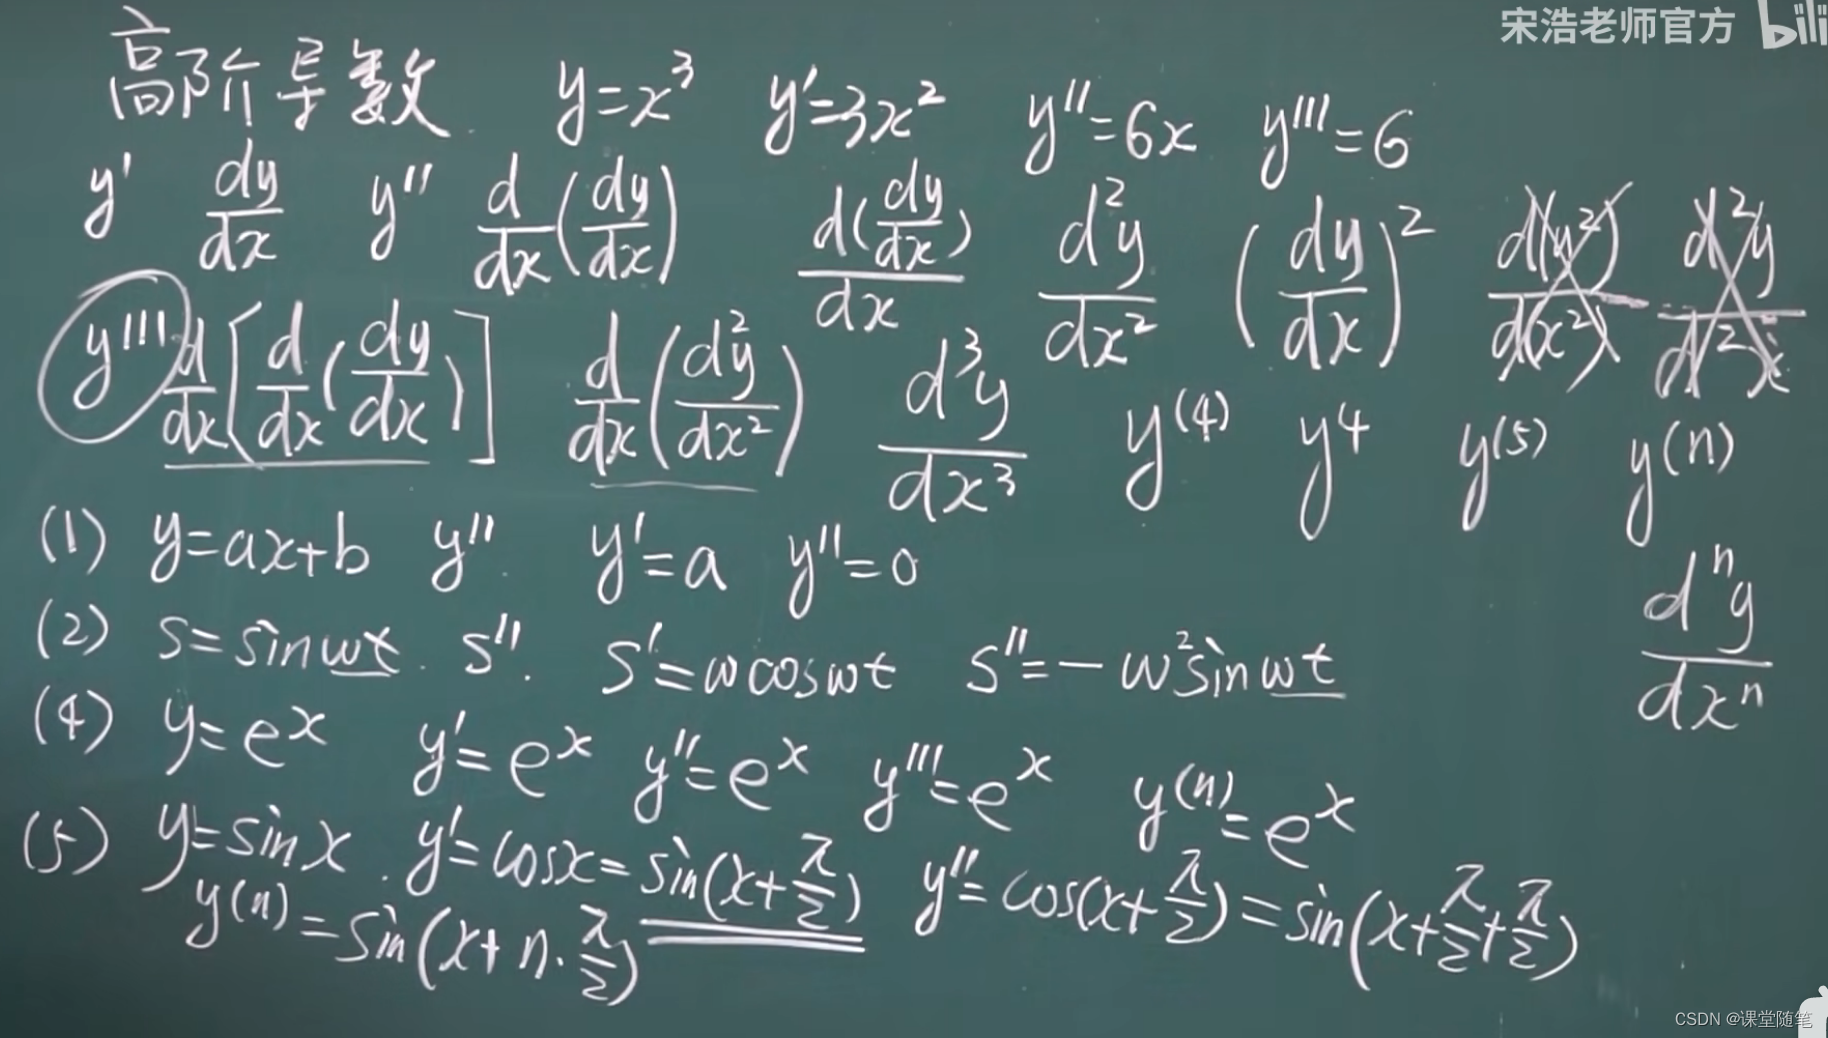 宋浩老师官方 bili
高阶导数 y=x³ y'=3x² y''=6x y'''=6
y' dy/dx y'' d/dx(dy/dx) d(dy/dx)/dx d²y/dx² (dy/dx)² d(y²)/d(x²) d²y/d²x
y''' d/dx[d/dx(dy/dx)] d/dx(d²y/dx²) d³y/dx³ y⁽⁴⁾ y⁴ y⁽⁵⁾ y⁽ⁿ⁾
(1) y=ax+b y'' y'=a y''=0
dⁿy/dxⁿ
(2) s=sinwt. s''. s'=wcoswt s''=-w²sinwt
(4) y=eˣ y'=eˣ y''=eˣ y'''=eˣ y⁽ⁿ⁾=eˣ
(5) y=sinx. y'=cosx=sin(x+π/2) y''=cos(x+π/2)=sin(x+π/2+π/2)
y⁽ⁿ⁾=sin(x+n·π/2)
CSDN @课堂随笔